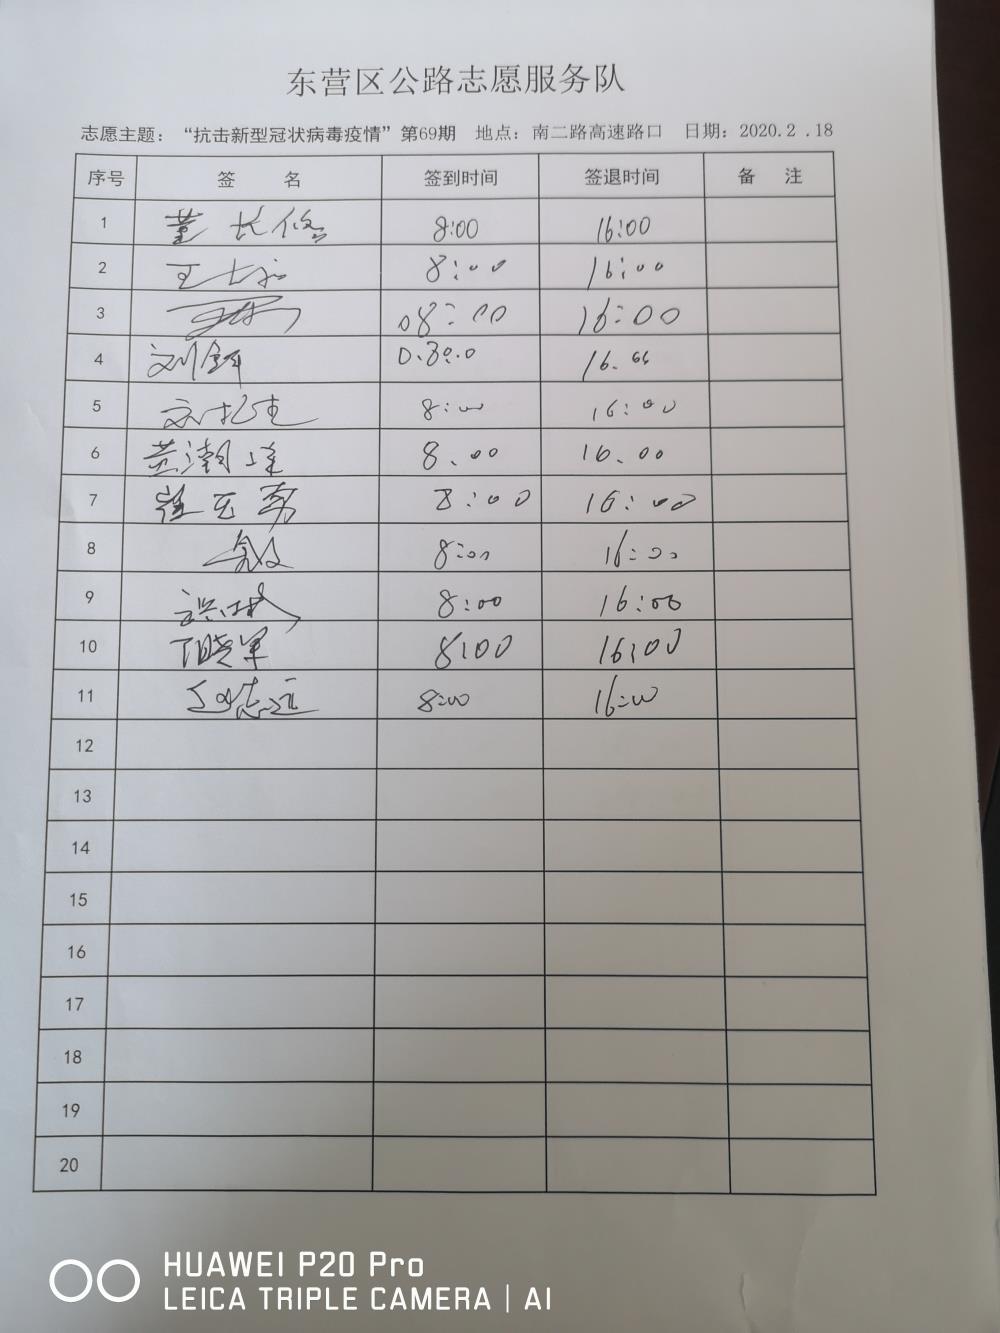 东营区公路志愿服务队
志愿主题：“抗击新型冠状病毒疫情”第69期 地点：南二路高速路口 日期：2020.2 .18
序号 签 名 签到时间 签退时间 备 注
1 董长修 8:00 16:00
2 8:00 16:00
3 08:00 16:00
4 16.00
5 8:00 16:00
6 8.00 16.00
7 8:00 16:00
8 8:00 16:00
9 8:00 16:00
10 丁晓军 8:00 16:00
11 8:00 16:00
12
13
14
15
16
17
18
19
20
HUAWEI P20 Pro
LEICA TRIPLE CAMERA | AI